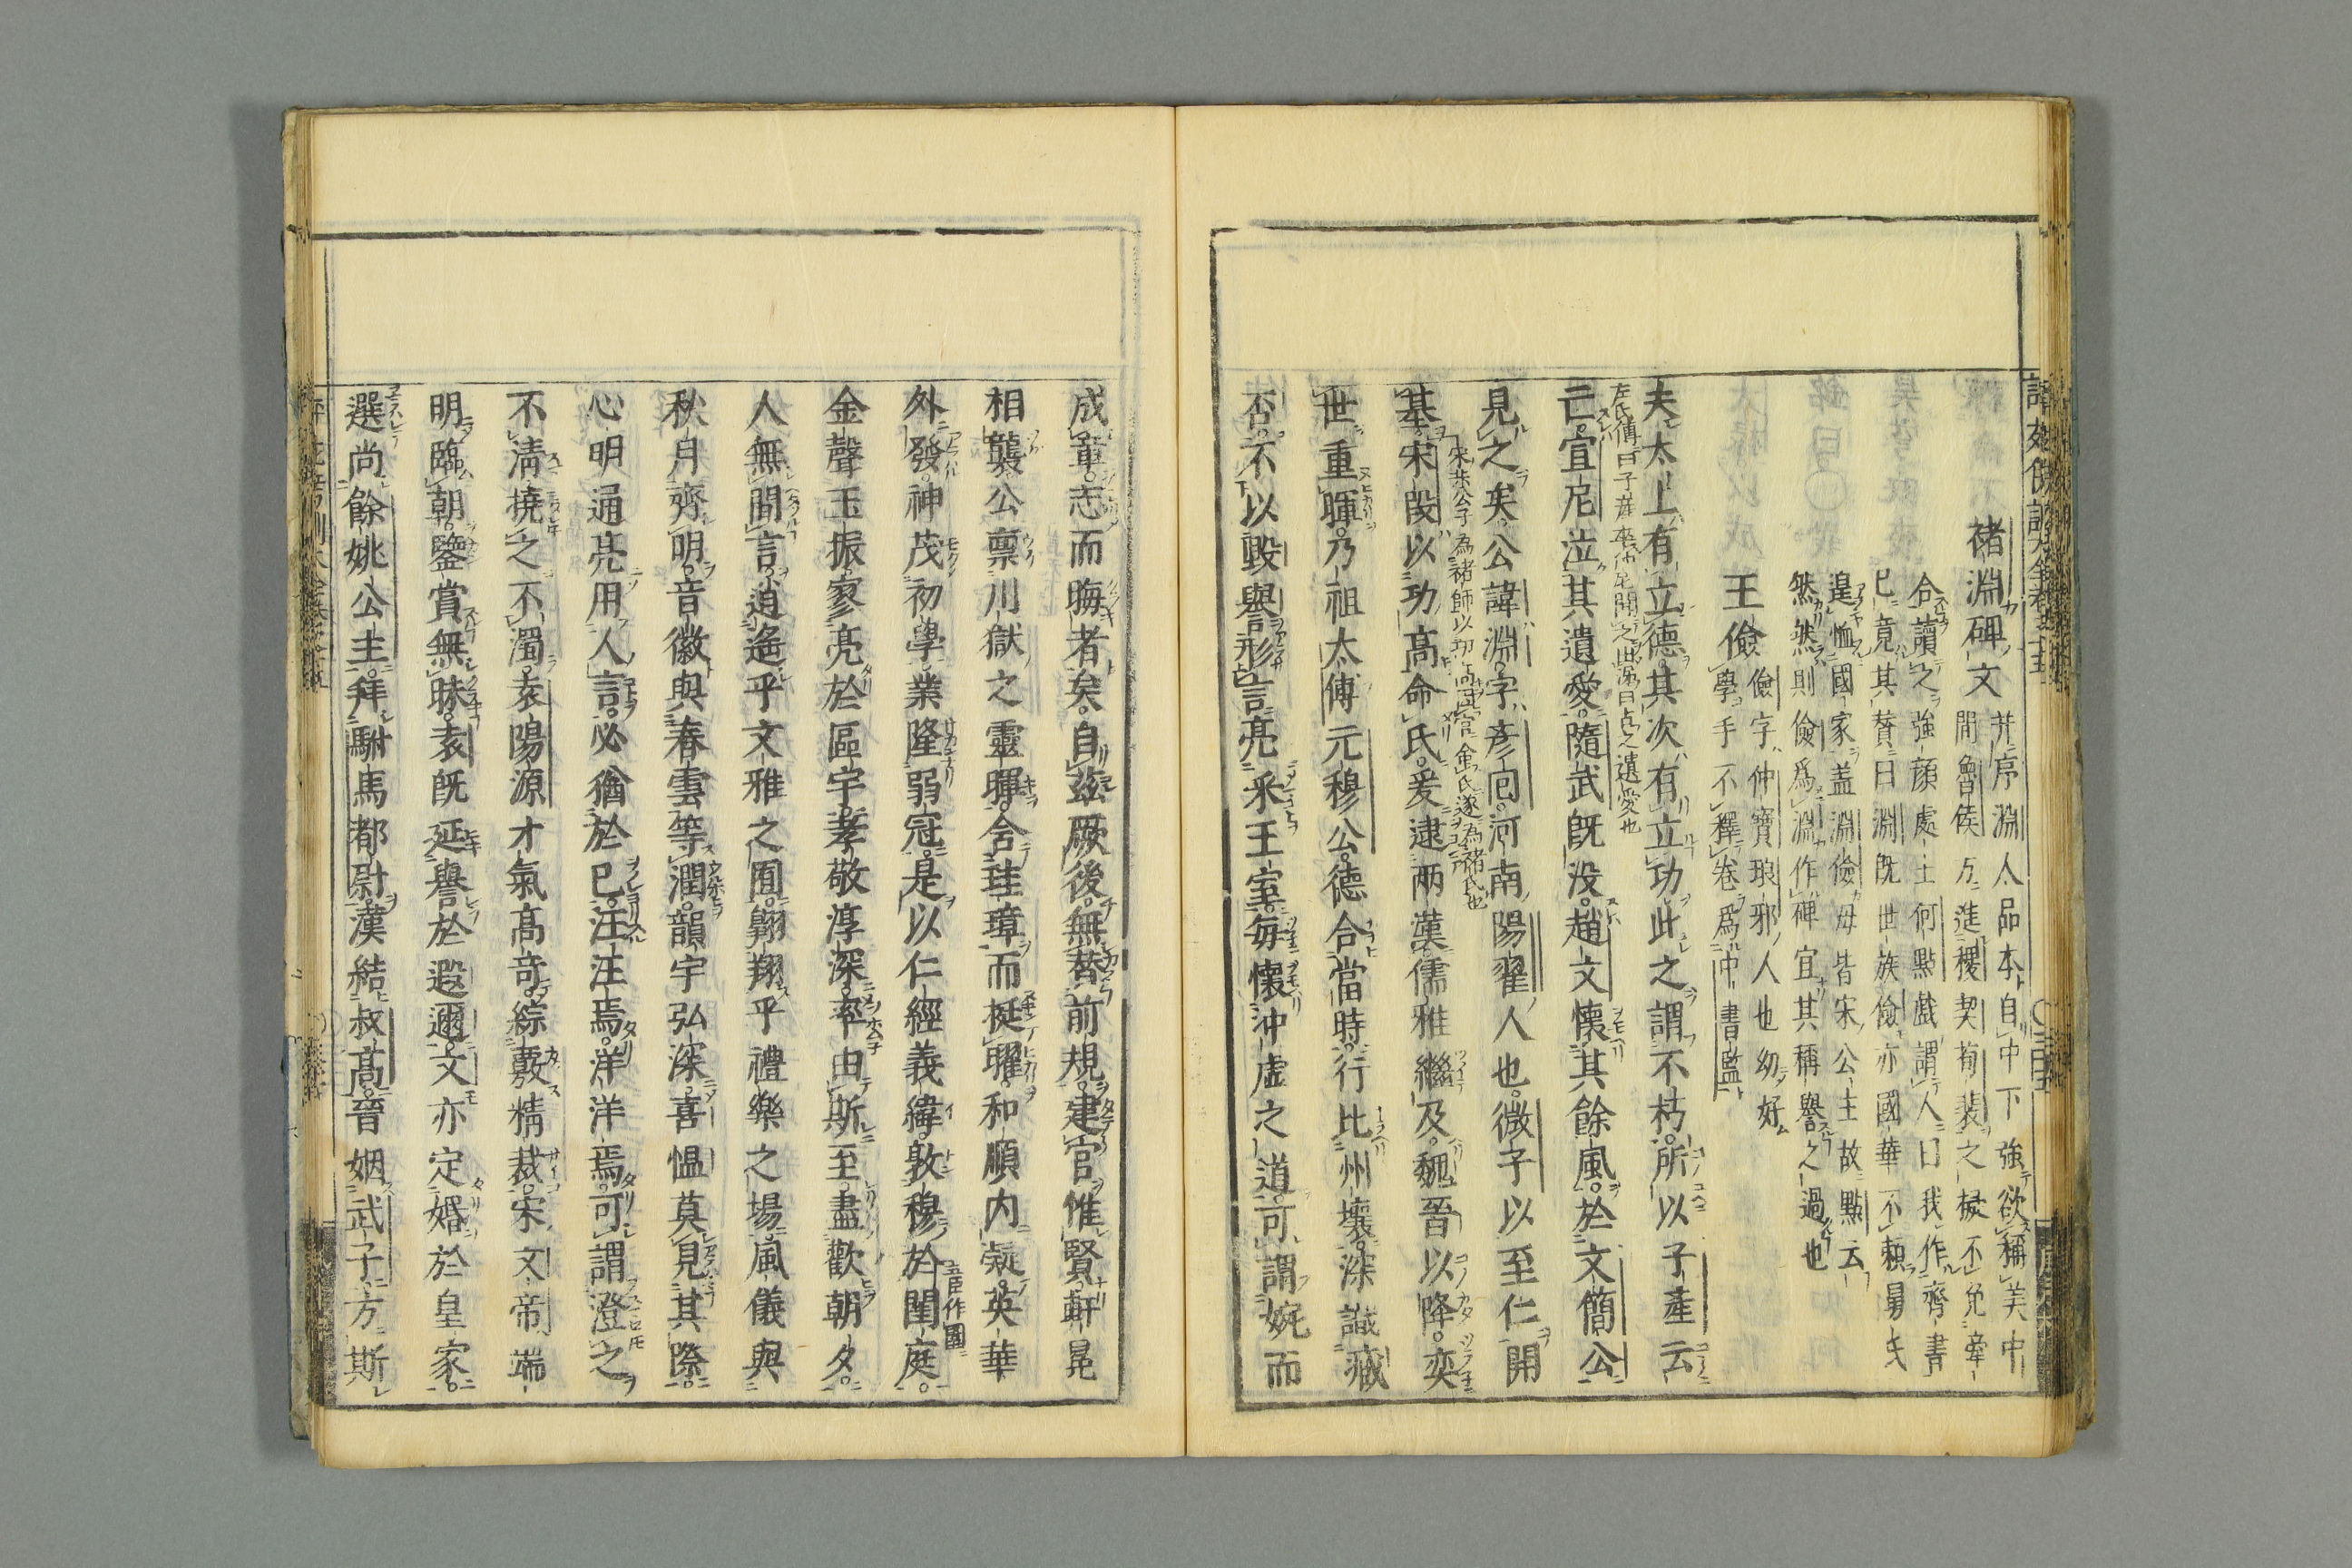 褚淵碑文并序
淵人品本自中下強欲稱美中
間魯侯乃進稷契荀裴之擬不免牽
合讀之強顔處士何點戯謂人曰我作齊書
已竟其賛曰淵既世族儉亦國華不頼舅氏
遑恤國家盖淵儉母皆宋公主故點云
然然則儉爲淵作碑宜其稱譽之過也
王儉
儉字仲寶琅邪人也幼好
學手不釋卷爲中書監
夫太上有立德其次有立功此之謂不朽所以子產云
左氏傳曰子產卒仲尼聞之出涕曰古之遺愛也
亡宣尼泣其遺愛隨武既没趙文懷其餘風於文簡公
見之矣公諱淵字彦回河南陽翟人也微子以至仁開
宋共公子為褚師以功高
基宋段以功高命氏爰逮兩漢儒雅繼及魏晉以降奕
世重暉乃祖太傅元穆公德合當時行比州壤深識臧
否不以毀譽形言亮采王室每懷沖虛之道可謂婉而
成章志而晦者矣自茲厥後無替前規建官惟賢軒冕
相襲公稟川嶽之靈暉含珪璋而挺曜和順内凝英華
外發神茂初學業隆弱冠是以仁經義緯敦穆於閨庭
五臣作國
金聲玉振寥亮於區宇孝敬淳深率由斯至盡歡朝夕
人無間言逍遥乎文雅之囿翺翔乎禮樂之場風儀與
秋月齊明音徽與春雲等潤韻宇弘深喜愠莫見其際
心明通亮用人言必猶於已汪汪焉洋洋焉可謂澄之
不清撓之不濁袁陽源才氣高竒綜覈精裁宋文帝端
明臨朝鑒賞無昧袁既延譽於遐邇文亦定婚於皇家
選尚餘姚公主拜駙馬都尉漢結叔高晉姻武子方斯